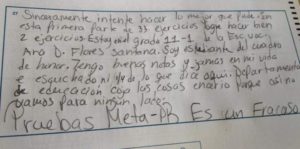 Sinceramente intente hacer lo mejor que pude en
esta primera parte de 33 Ejercicios logre hacer bien
2 ejercicios Estoy del grado 11-1 la Esc. voc.
Ana D. Flores Santana. Soy estudiante del cuadro
de honor. Tengo buenas notas y jamas en mi vida
e escuchado ni de lo que dice aqui. Departamento
de educación con las cosas en porque asi no
vamos para ningún lado.
Pruebas Meta-PR Es un Fracaso